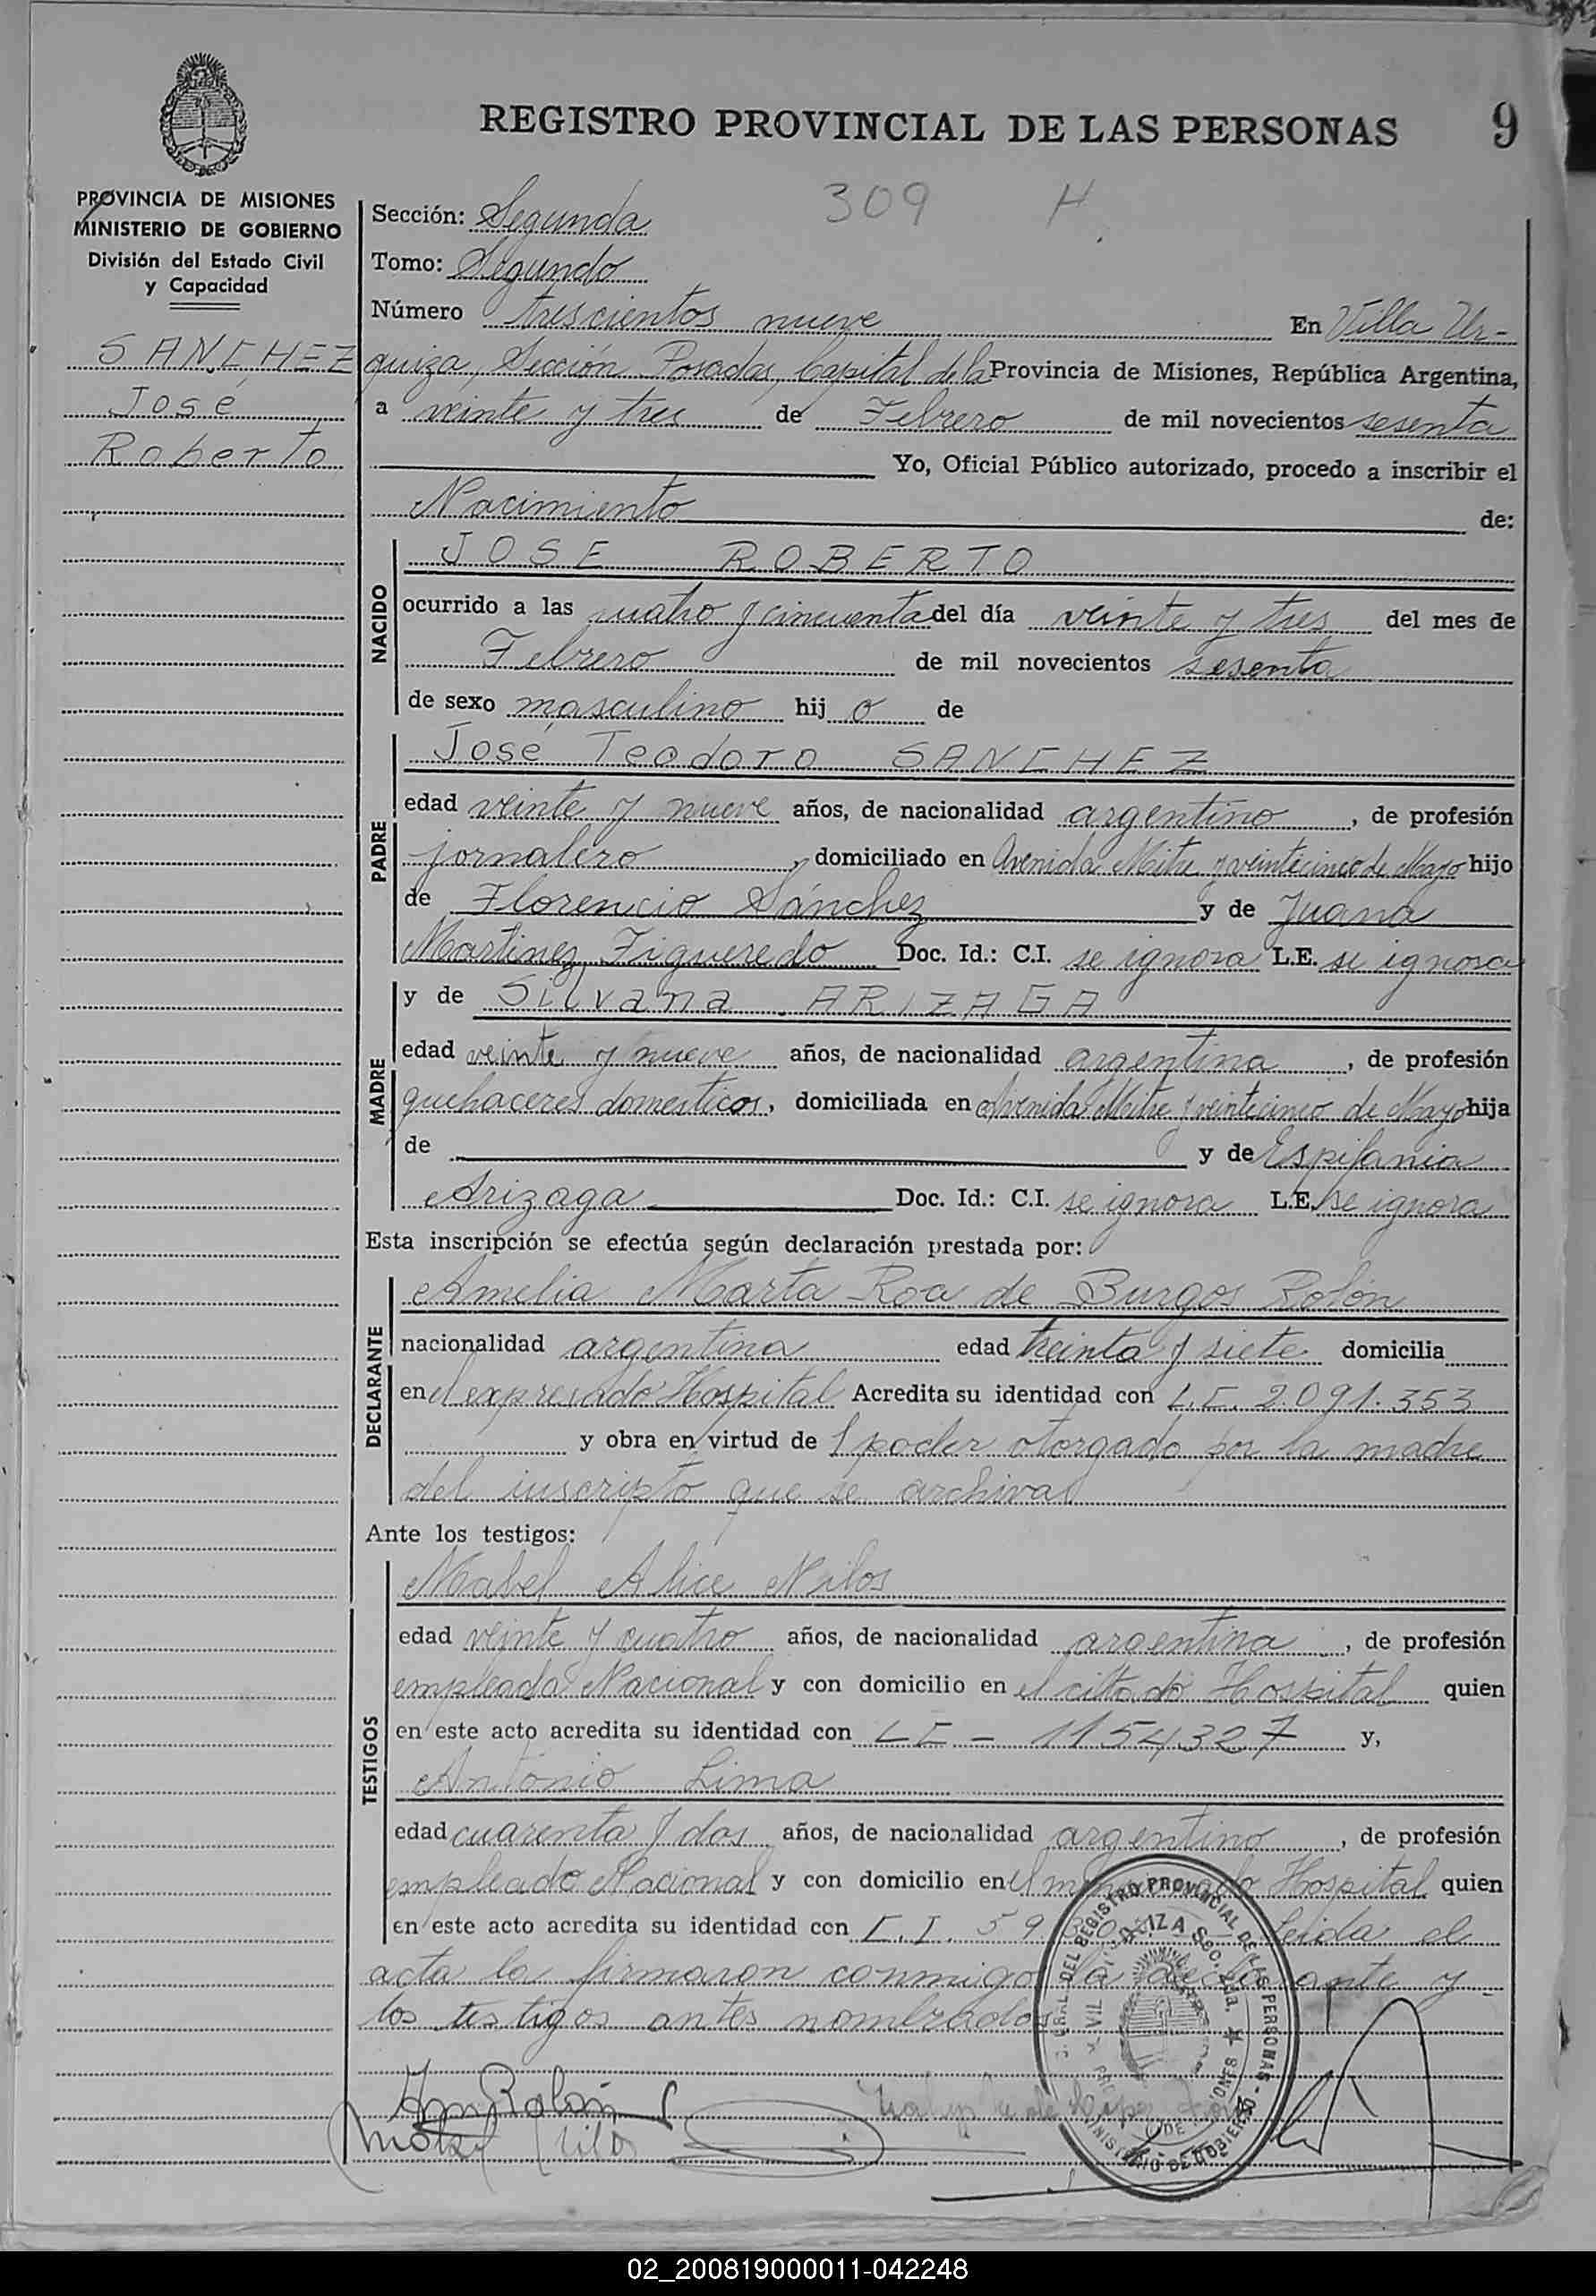 REGISTRO PROVINCIAL DE LAS PERSONAS 9
PROVINCIA DE MISIONES
MINISTERIO DE GOBIERNO
División del Estado Civil
y Capacidad
SANCHEZ
José
Roberto
309 H.
Sección: Segunda
Tomo: Segundo
Número trescientos nueve En Villa Ur-
quiza, Sección Posadas, Capital de la Provincia de Misiones, República Argentina,
a veinte y tres de Febrero de mil novecientos sesenta
Yo, Oficial Público autorizado, procedo a inscribir el
Nacimiento de:
NACIDO
JOSE ROBERTO
ocurrido a las cuatro y cincuenta del día veinte y tres del mes de
Febrero de mil novecientos sesenta
de sexo masculino hij o de
PADRE
José Teodoro SANCHEZ
edad veinte y nueve años, de nacionalidad argentino, de profesión
jornalero, domiciliado en Avenida Mitre y veinticinco de Mayo hijo
de Florencio Sánchez y de Juana
Martinez Figueredo Doc. Id.: C.I. se ignora L.E. se ignora
MADRE
y de Silvana ARIZAGA
edad veinte y nueve años, de nacionalidad argentina, de profesión
quehaceres domesticos, domiciliada en Avenida Mitre y veinticinco de Mayo hija
de y de Espifania
Arizaga Doc. Id.: C.I. se ignora L.E. se ignora
Esta inscripción se efectúa según declaración prestada por:
DECLARANTE
Amelia Marta Roa de Burgos Rolón
nacionalidad argentina edad treinta y siete domicilia
en el expresado Hospital Acredita su identidad con L.C. 2.091.353
y obra en virtud de 1 poder otorgado por la madre
del inscripto que se archiva
Ante los testigos:
TESTIGOS
Mabel Alice Nilos
edad veinte y cuatro años, de nacionalidad argentina, de profesión
empleada Nacional y con domicilio en el citado Hospital quien
en este acto acredita su identidad con LC - 1154327 y,
Antonio Lima
edad cuarenta y dos años, de nacionalidad argentino, de profesión
empleado Nacional y con domicilio en el Hospital quien
en este acto acredita su identidad con C.I. 59 Leida el
acta la firmaron conmigo la declarante y
los testigos antes nombrados
DEL REGISTRO PROVINCIAL DE LAS PERSONAS - MINISTERIO DE GOBIERNO
02_200819000011-042248